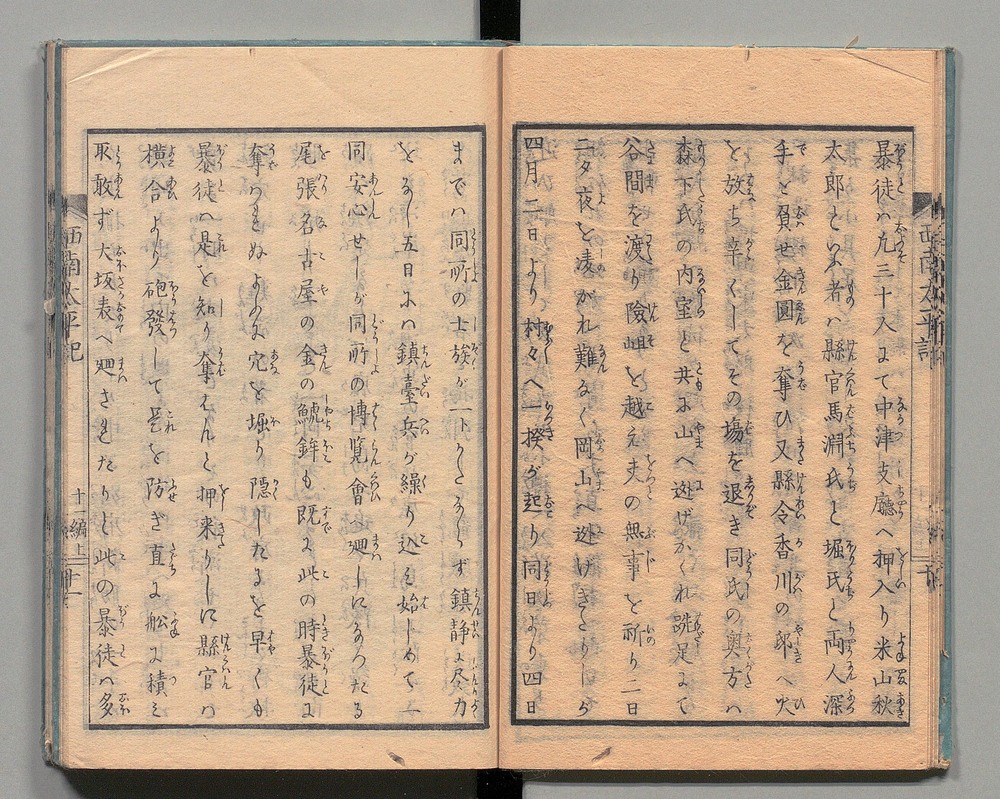 暴徒ハ凡三十人にて中津支廳へ押入り米山秋
太郎といふ者ハ縣官馬淵氏と堀氏と両人深
手を負せ金圓を奪ひ又縣令香川の邸へ火
を放ち辛くしてその場を退き同氏の奥方ハ
森下氏の内室と共に山へ迯げかくれ跣足にて
谷間を渡り險岨を越え夫の無事を祈り二日
二タ夜を凌がれ難なく岡山へ迯げきたりしヿ
四月二日より村々へ一揆が起り同日より四日
までハ同所の士族が一ト方ならず鎮静に尽力
をなし五日にハ鎮臺兵が繰り込み始じめて一
同安心せしが同所の博覧會へ廻しになつたる
尾張名古屋の金の鯱鉾も既に此の時暴徒に
奪はれぬよふに穴を堀り隠したるを早くも
暴徒ハ是を知り奪はんと押来りしに縣官ハ
横合より砲發して是を防ぎ直に舩に積み
取敢ず大坂表へ廻されたりと此の暴徒ハ多
西南太平記
十一編上
十一